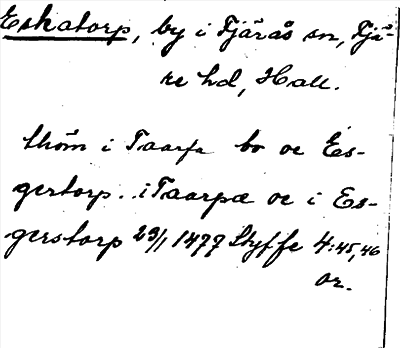 Eskatorp, by i Fjärås sn, Fjä-
re hd, Hall.
thöm i Taarpe bo oc Es-
gertorp.. i Taarpæ oc i Es-
gerstorp 23/1 1477 Styffe 4:45,46
or.